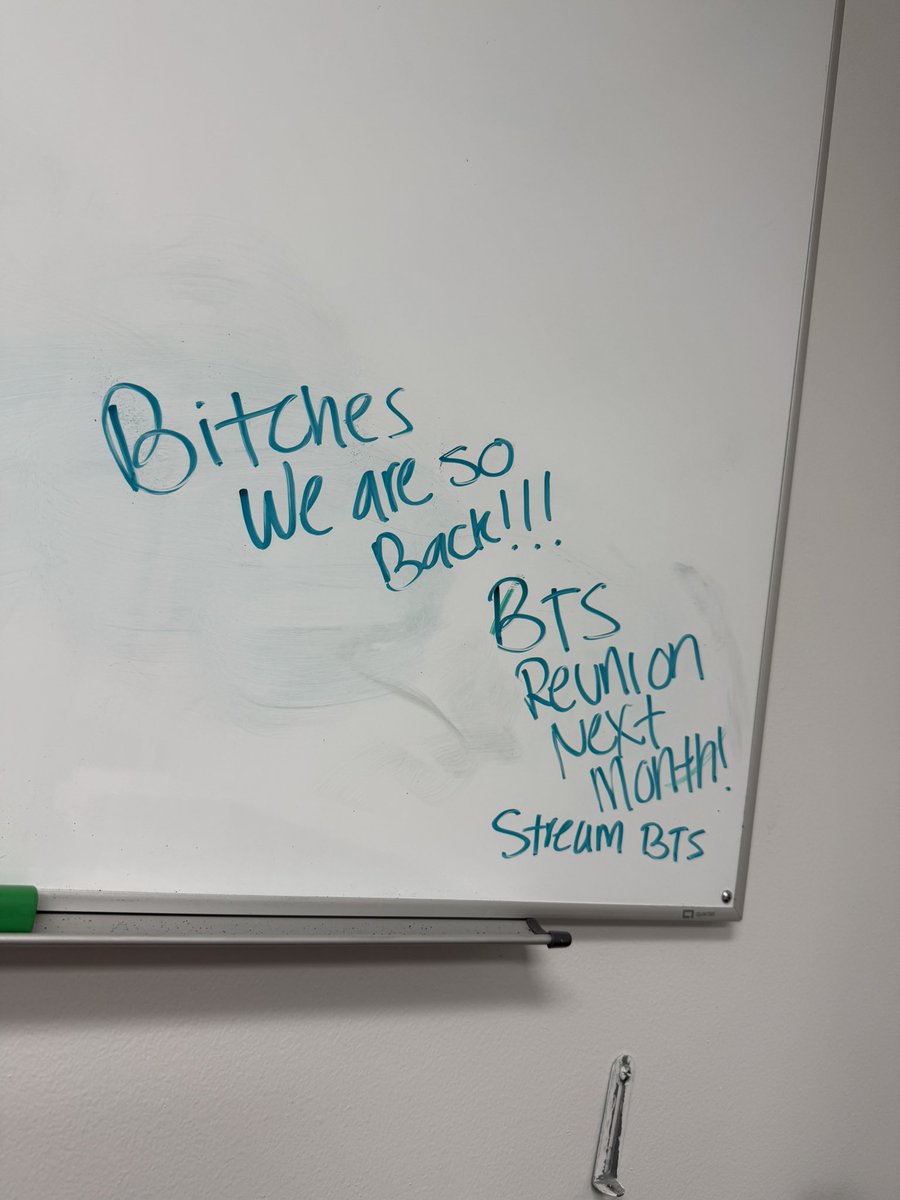 Bitches
We are so
Back!!!
BTS
Reunion
Next
Month!
Stream BTS